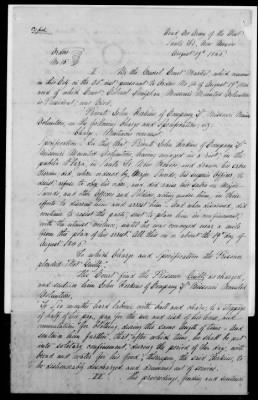 Copied
Head Qrs Army of the West
Santa Fé, New Mexico
August 19th, 1846
Orders
No 15
I. By the General Court Martial, which convened
in this City on the 21st inst, pursuant to Orders No 14 of 19th Aug 1846
and of which Court, Colonel Doniphan Missouri Mounted Volunteers
is President, was tried,
Private John Hoskins of Company G Missouri Mounted
Volunteers, on the following charge and specification, viz:
Charge, Mutinous conduct
Specification. In this that Private John Hoskins of Company G
Missouri Mounted Volunteers, having engaged in a riot, in the
public Plaza, in Santa Fé, New Mexico and drawn his sabre
therein did, when ordered by Major Swords, his superior Officer, to
desist, refuse to obey his order, and did raise his sabre on Major
Swords, and other Officers and others acting under him, in their
efforts to disarm him and arrest him; And when disarmed, did
continue to resist the party sent to place him in confinement,
with the utmost violence, until he was conveyed near a mile
from the place of his arrest. All this on or about the 19th day of
August 1846.
To which charge and specification the Prisoner
pleaded "Not Guilty"
The Court find the Prisoner Guilty as charged,
and sentence him John Hoskins of Company G Missouri Mounted
Volunteers
To months hard labour with ball and chain; to a stoppage
of half of his pay, pay for the use and risk of his horse, and
commutation for clothing during the same length of time. And
sentence him further, that, after which time, he shall be put
into solitary confinement, during the period of ten days, with
bread and water for his food; thereupon, the said Hoskins, to
be dishonorably discharged and drummed out of service.
II. The proceedings, finding and sentence